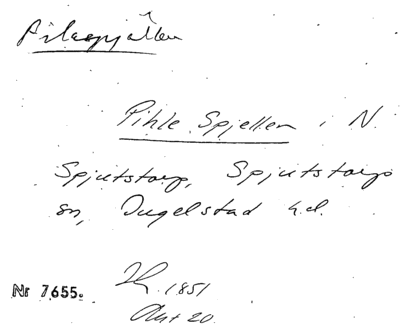 Pilespjällen
Pihle Spjellen i N.
Spjutstorp, Spjutstorps
sn, Ingelstad hd.
1851
Nr 7655.
Akt 20